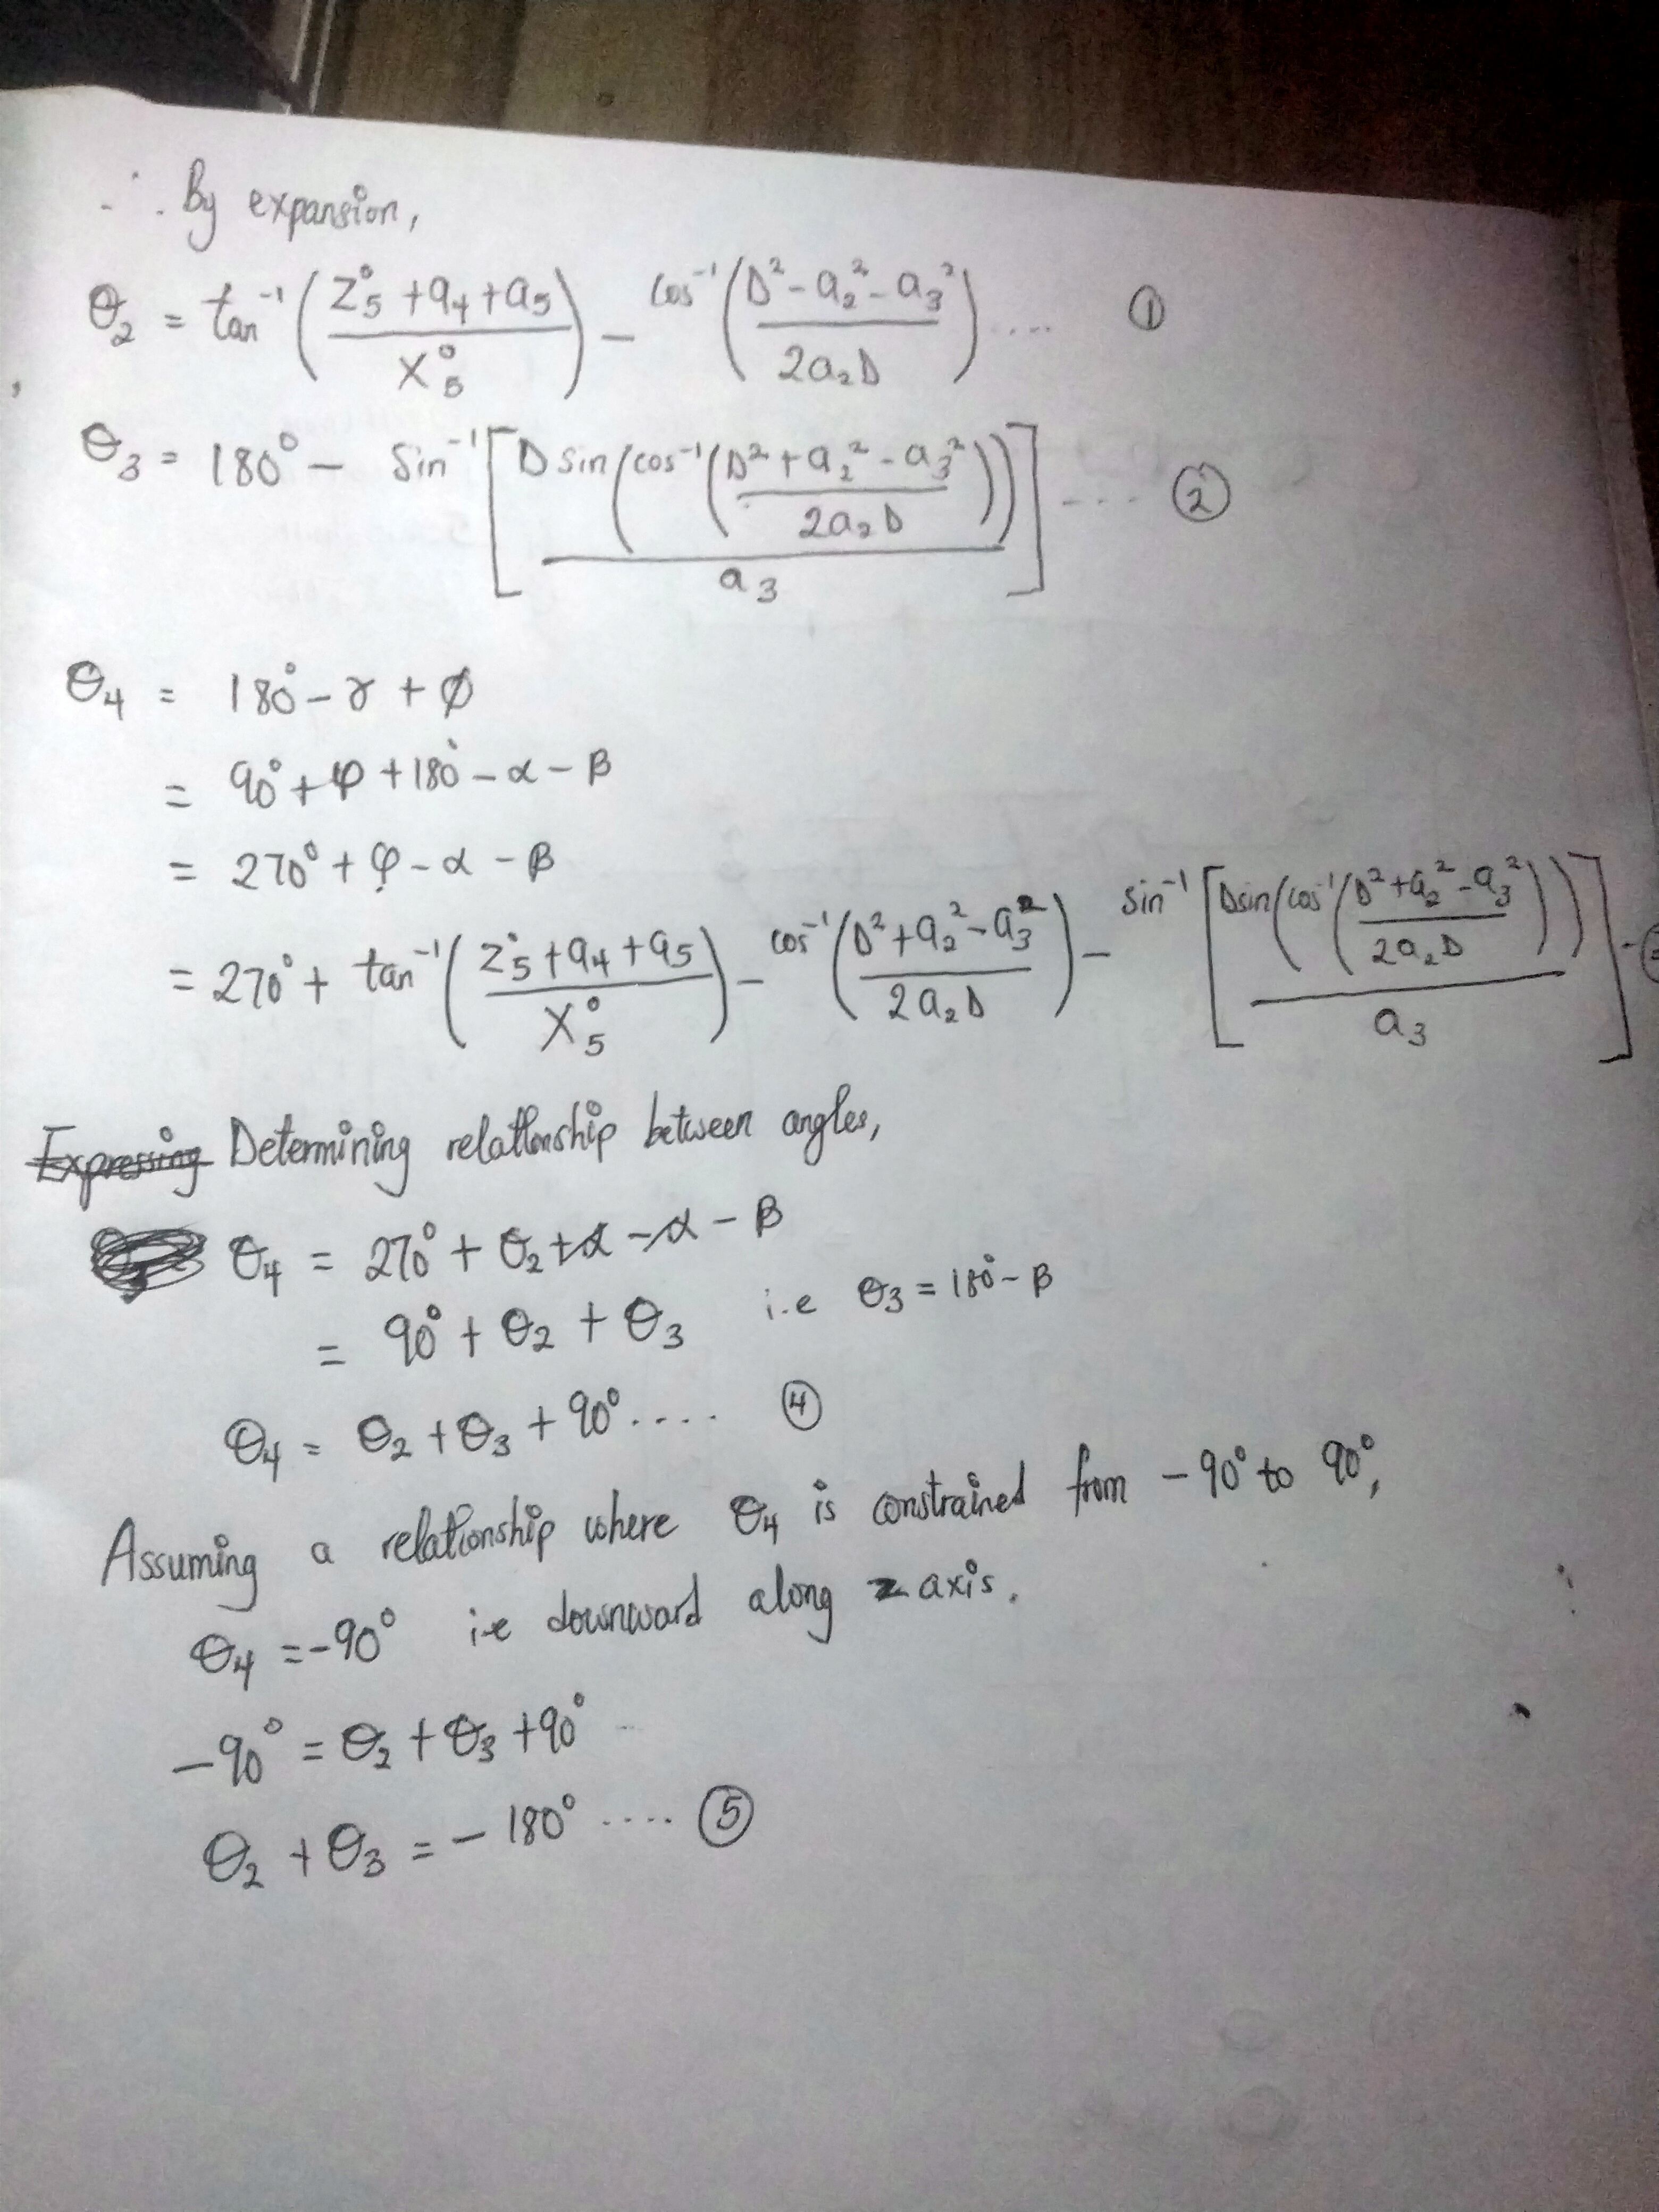 ∴ By expansion,
θ₂ = tan⁻¹((Z₅⁰ + a₄ + a₅)/X₅⁰) − cos⁻¹((D² − a₂² − a₃²)/(2a₂D)) .... ①
θ₃ = 180° − sin⁻¹[D sin(cos⁻¹((D² + a₂² − a₃²)/(2a₂D)))/a₃] .... ②
θ₄ = 180° − γ + ϕ
= 90° + φ + 180° − α − β
= 270° + φ − α − β
= 270° + tan⁻¹((Z₅⁰ + a₄ + a₅)/X₅⁰) − cos⁻¹((D² + a₂² − a₃²)/(2a₂D)) − sin⁻¹[D sin(cos⁻¹((D² + a₂² − a₃²)/(2a₂D)))/a₃]
Expressing Determining relationship between angles,
θ₄ = 270° + θ₂ + α − α − β
= 90° + θ₂ + θ₃ i.e θ₃ = 180° − β
θ₄ = θ₂ + θ₃ + 90° .... ④
Assuming a relationship where θ₄ is constrained from −90° to 90°,
θ₄ = −90° i.e downward along z axis.
−90° = θ₂ + θ₃ + 90°
θ₂ + θ₃ = −180° .... ⑤